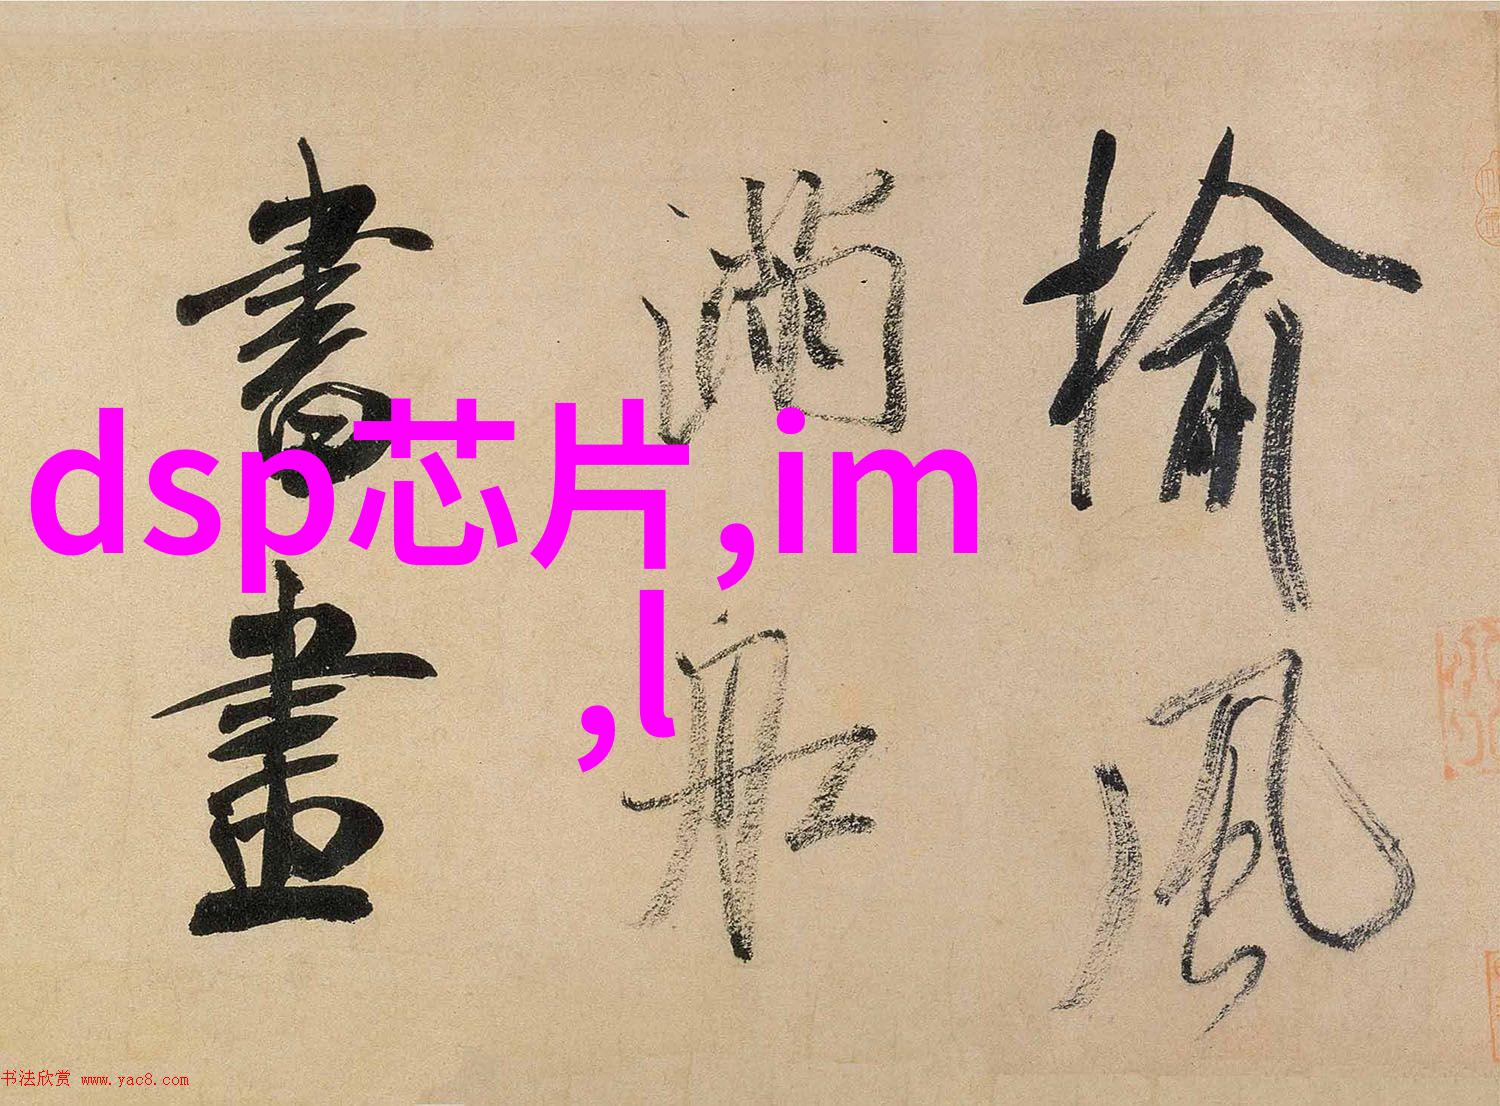 榆風
滿船
書畫
dsp芯片,im
,l
书法欣赏 www.yac8.com